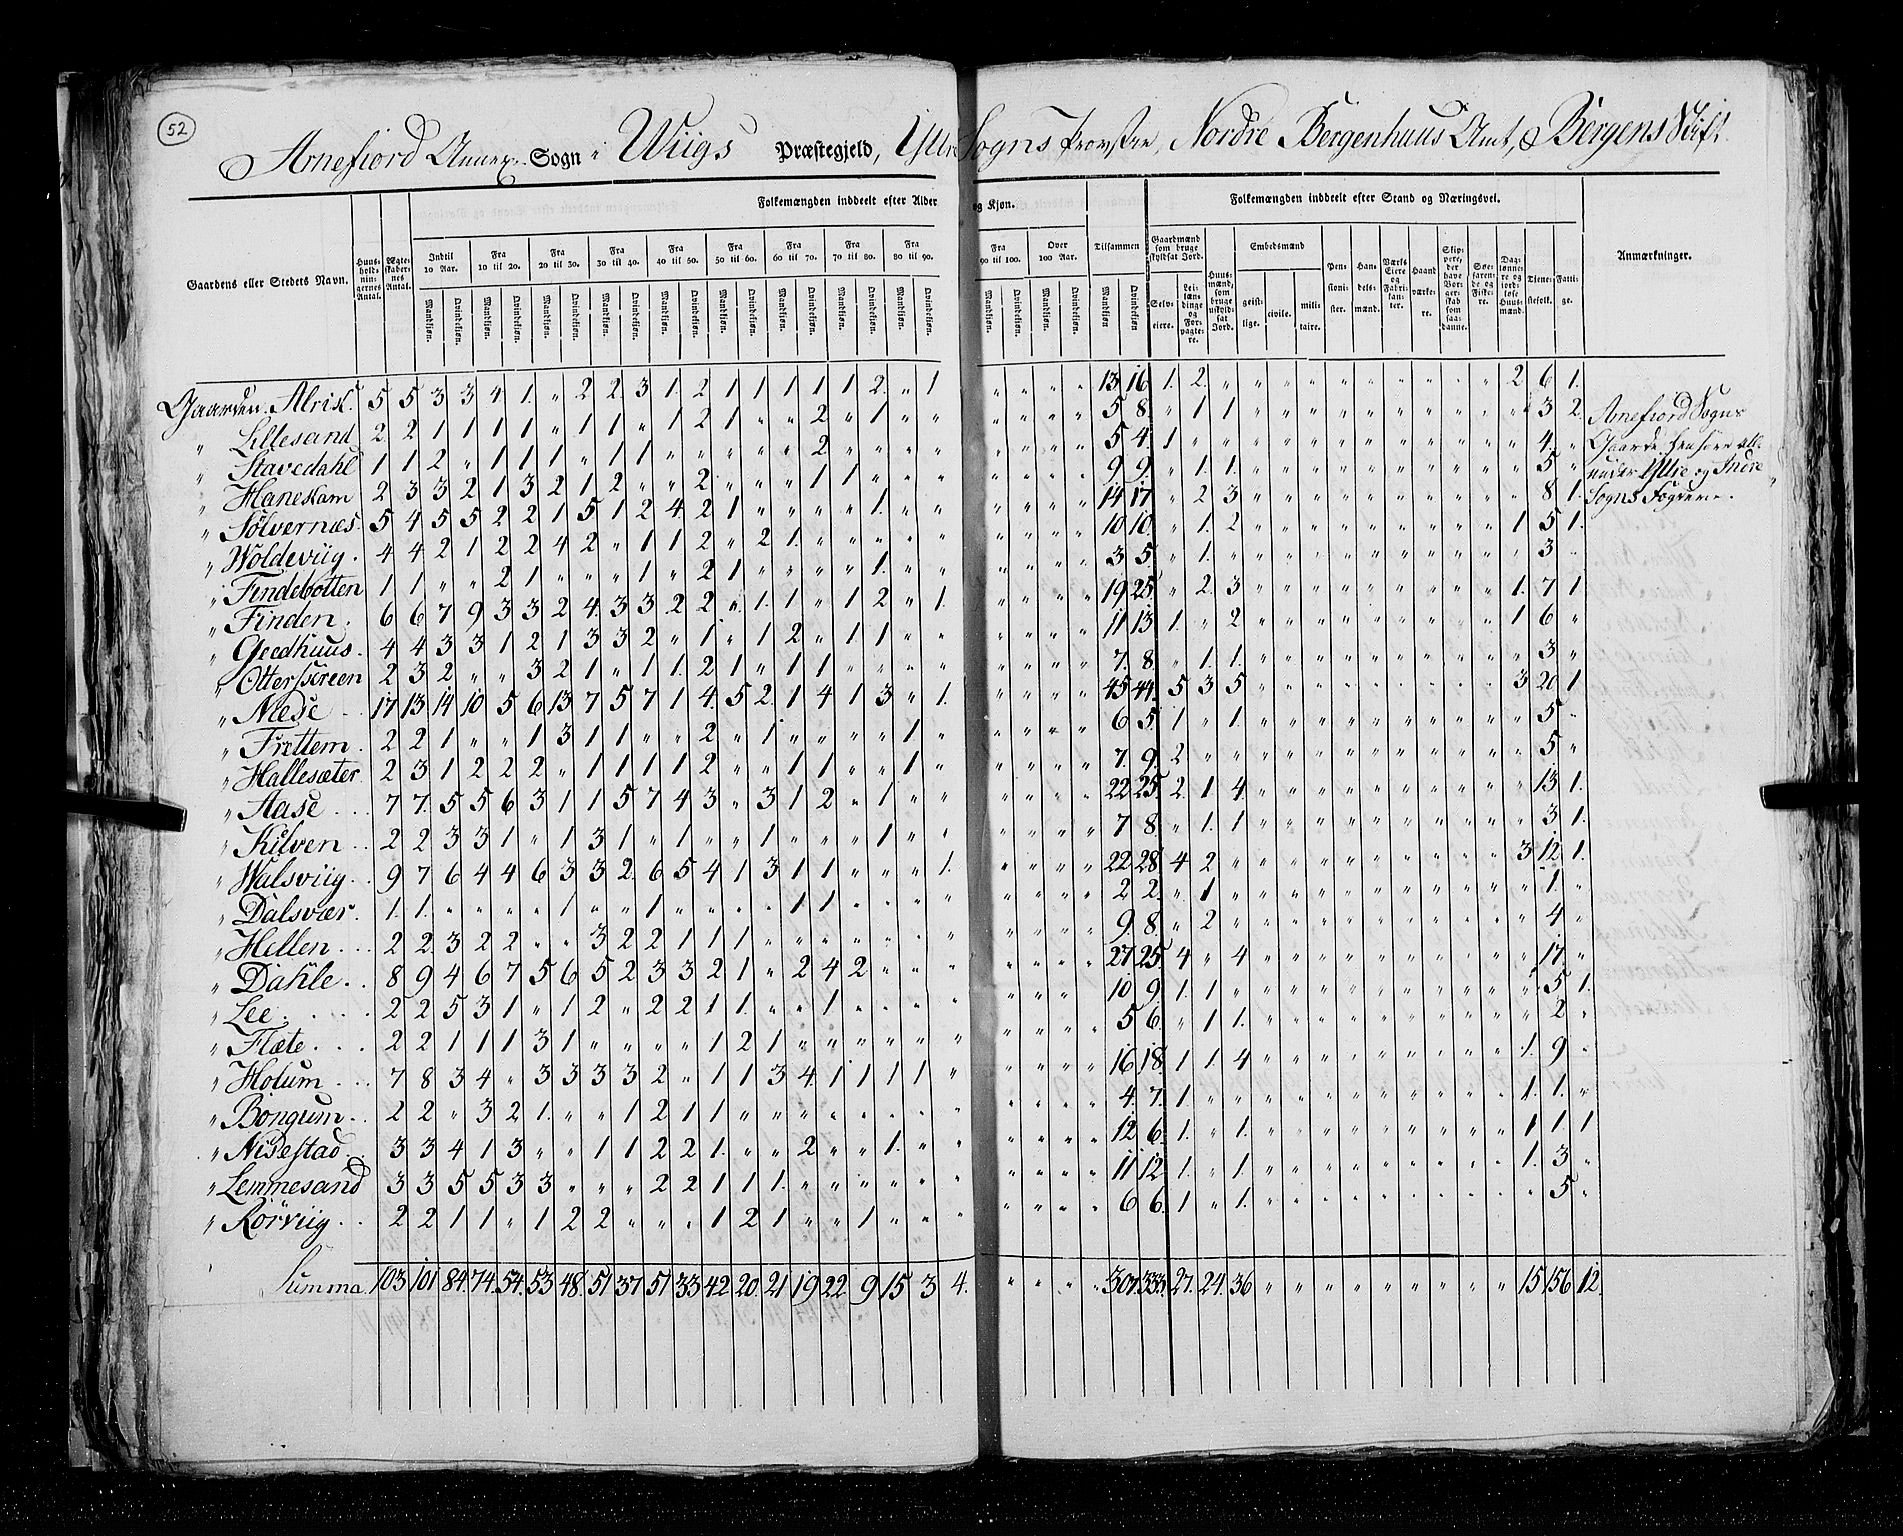 52
Arnefiord Annex Sogn i Wiigs Præstegjeld, Yttre Sogns Provstie, Nordre Bergenhuus Amt, Bergens Stift.
Folkemængden inddeelt efter Alder og Kjøn. Folkemængden inddeelt efter Stand og Næringsvei.
Gaardens eller Stedets Navn. Huusholdningernes Antal. Ægteskabernes Antal. Indtil 10 Aar. Fra 10 til 20. Fra 20 til 30. Fra 30 til 40. Fra 40 til 50. Fra 50 til 60. Fra 60 til 70. Fra 70 til 80. Fra 80 til 90. Fra 90 til 100. Over 100 Aar. Tilsammen Gaardmænd som bruge skyldsat Jord. Huusmænd, som bruge uskyldsat Jord. Embedsmænd Pensionister. Handelsmænd. Værks Eiere og Fabrikanter. Haandværkere. Skippere, der have Vorgerskab som saadanne. Søefarende og Fiskere. Daglønnere og jordløse Huusmænd. Tjenestefolk. Fattige. Anmærkninger.
Mandkjøn. Qvindekjøn. Mandkjøn. Qvindekjøn. Mandkjøn. Qvindekjøn. Mandkjøn. Qvindekjøn. Mandkjøn. Qvindekjøn. Mandkjøn. Qvindekjøn. Mandkjøn. Qvindekjøn. Mandkjøn. Qvindekjøn. Mandkjøn. Qvindekjøn. Mandkjøn. Qvindekjøn. Mandkjøn. Qvindekjøn. Mandkjøn Qvindekjøn. Selveiere. Leilændinge og Forpagtere. geistlige. civile. militaire.
Gaarden Alrik. 5 5 3 3 4 1. " 2 2 3 1. 2 1 1 1 1 1 2. " 1 " " " " 13 16 1. 2. " " " " " " " " " " 2 6 1.
" Lillesand 2 2 1 1 1 1 " 1 1 " 1 2 1 " " 2 " 1 " " " " " " 5 8. " 1 1 " " " " " " " " " " 3 2
" Stavedahl 1 1 2 " 1 1 1 " 1 1 " " " " " 2 " " " " " " " " 5 4. 1 " " " " " " " " " " " " 4. "
" Haneskam 2 3 3 2 1 3 2 1 2 " " 2 " " " 1 1 " " " " " " " 9 9 " 1. 1. " " " " " " " " " " 5 "
" Sølvernæs. 5 4 5 5 2 2 1 5 1 2 4 2 1 " " " " 1. " " " " " " 14 17 " 2 3 " " " " " " " " " " 8 1.
" Woldeviig. 4 4 2 1 2 2 4 2 " 1 1 2 " 2 1. " " " " " " " " " 10 10. " 1. 2 " " " " " " " " " 1 5 1.
" Findebotten 1 1 " " 2 1 " " " 1 " 2 1 " " " " 1. " " " " " " 3 5. " 1. " " " " " " " " " " " 3 "
" Finden. 6 6 7 9 3 3 2 4. 3 3 2 2 " 1. 1 " 1 2 " 1. " " " " 19 25. " 2 3 " " " " " " " " " 1. 7 1
" Geedhuus. 4 4 3 3 1 2 1 3 3 2 " 1 " 1 2 " 1 1 " " " " " " 11 13 1. " 2 " " " " " " " " " 1 6 "
" Otterskreen 2 3 2 " " 3 2 1 " 1 1. 2 1 " 1 1 " " " " " " " " 7. 8 " 1. 1. " " " " " " " " " " 3 "
" Næse 17 13 14 10 5 6 13 7 5 7 1 4. 5 2. 1 4 1 3 " 1. " " " " 45 44. 5 3 5 " " " " " " " " " 3 20 1
" Frettem. 2 2 1 " " 1 3 1 1 " " 2 " 1 " " " " 1 " " " " " 6 5. 1 " 1. " " " " " " " " " " 5 "
" Hallesæter. 2 3 1 2 2 2 " 1 1 1 1 2 " " 1 1 " " 1 " " " " " 7. 9. 2 " " " " " " " " " " " " 5 "
" Aase 7 7 5 5 6 3 1 1 5 7 4 3 " 3 1 2 " 1 " " " " " " 22 25. 2. 1 4. " " " " " " " " " " 13 1.
" Kilven 2 2 3 3 1 " 1 3 1 " 1 " " 1 " " " 1 " " " " " " 7 8. " 1. 1 " " " " " " " " " " 3 1.
" Walsviig. 9 7 6 4 4 6 3 3 2 6 5 4 1 3 1 1 " " " 1. " " " " 22 28 4 2 " " " " " " " " " " 3 12 1.
" Dalsvær. 1. 1. " " " " 1 " " 1 " " " " 1 1 " " " " " " " " 2 2. " 1 " " " " " " " " " " " 1. "
" Hellen 2 2 3 2 2 " " 3 2 2 1 1 1 " " " " " " " " " " " 9 8. " 2 " " " " " " " " " " " 4 "
" Dahle 8 9 4 6 7 5 6 5 2 3 3 2 1 " 2 4 2 " " " " " " " 27 25. 4 " 4 " " " " " " " " " " 17. "
" Lee 2 2 5 3 1 " 1 2 " 2 2 1 1. " " 1 " " " " " " " " 10 9. 1. 1 " " " " " " " " " " " 5 1.
" Flæte 2 2 1 1 1 3 1 " " " " 1 2 1 " " " " " " " " " " 5 6. " 1 1. " " " " " " " " " " 2 "
" Holum 7 8 3 4 " 3 3 3 3 2 " 1 1 3 4. 1 1 1 1 " " " " " 16 18. 1 1. 4 " " " " " " " " " 1. 9 "
" Bongum 2 2 " 3 2 1. " " 1 2 1 1 " " " " " " " " " " " " 4. 7. 1. " " " " " " " " " " " 1. 1. "
" Nisestad 3 3 4 1 3 " " 1 1 2 2 1. " " 2 " " 1. " " " " " " 12 6. 1. " 1. " " " " " " " " " 1 1 1
" Lemmesand 3 3 5 5 3 3 " " " 2 2 1 1 1. " " " " " " " " " " 11 12 1. " 1. " " " " " " " " " 1. 3 "
" Rørviig 2 2 1 1 " 1 2 2 " " " 1 2 1 " " 1 " " " " " " " 6 6. 1 " 1. " " " " " " " " " " 5 "
Arnefiord Sogns
Gaarde henhøre alle
under Yttre og Indre
Sogns Fogderie.
Summa 103 101 84 74. 54. 53 48. 51 37 51 33 42 20. 21 19 22. 9 15 3 4. " " " " 307. 333. 27. 24. 36 " " " " " " " " " 15 156 12.